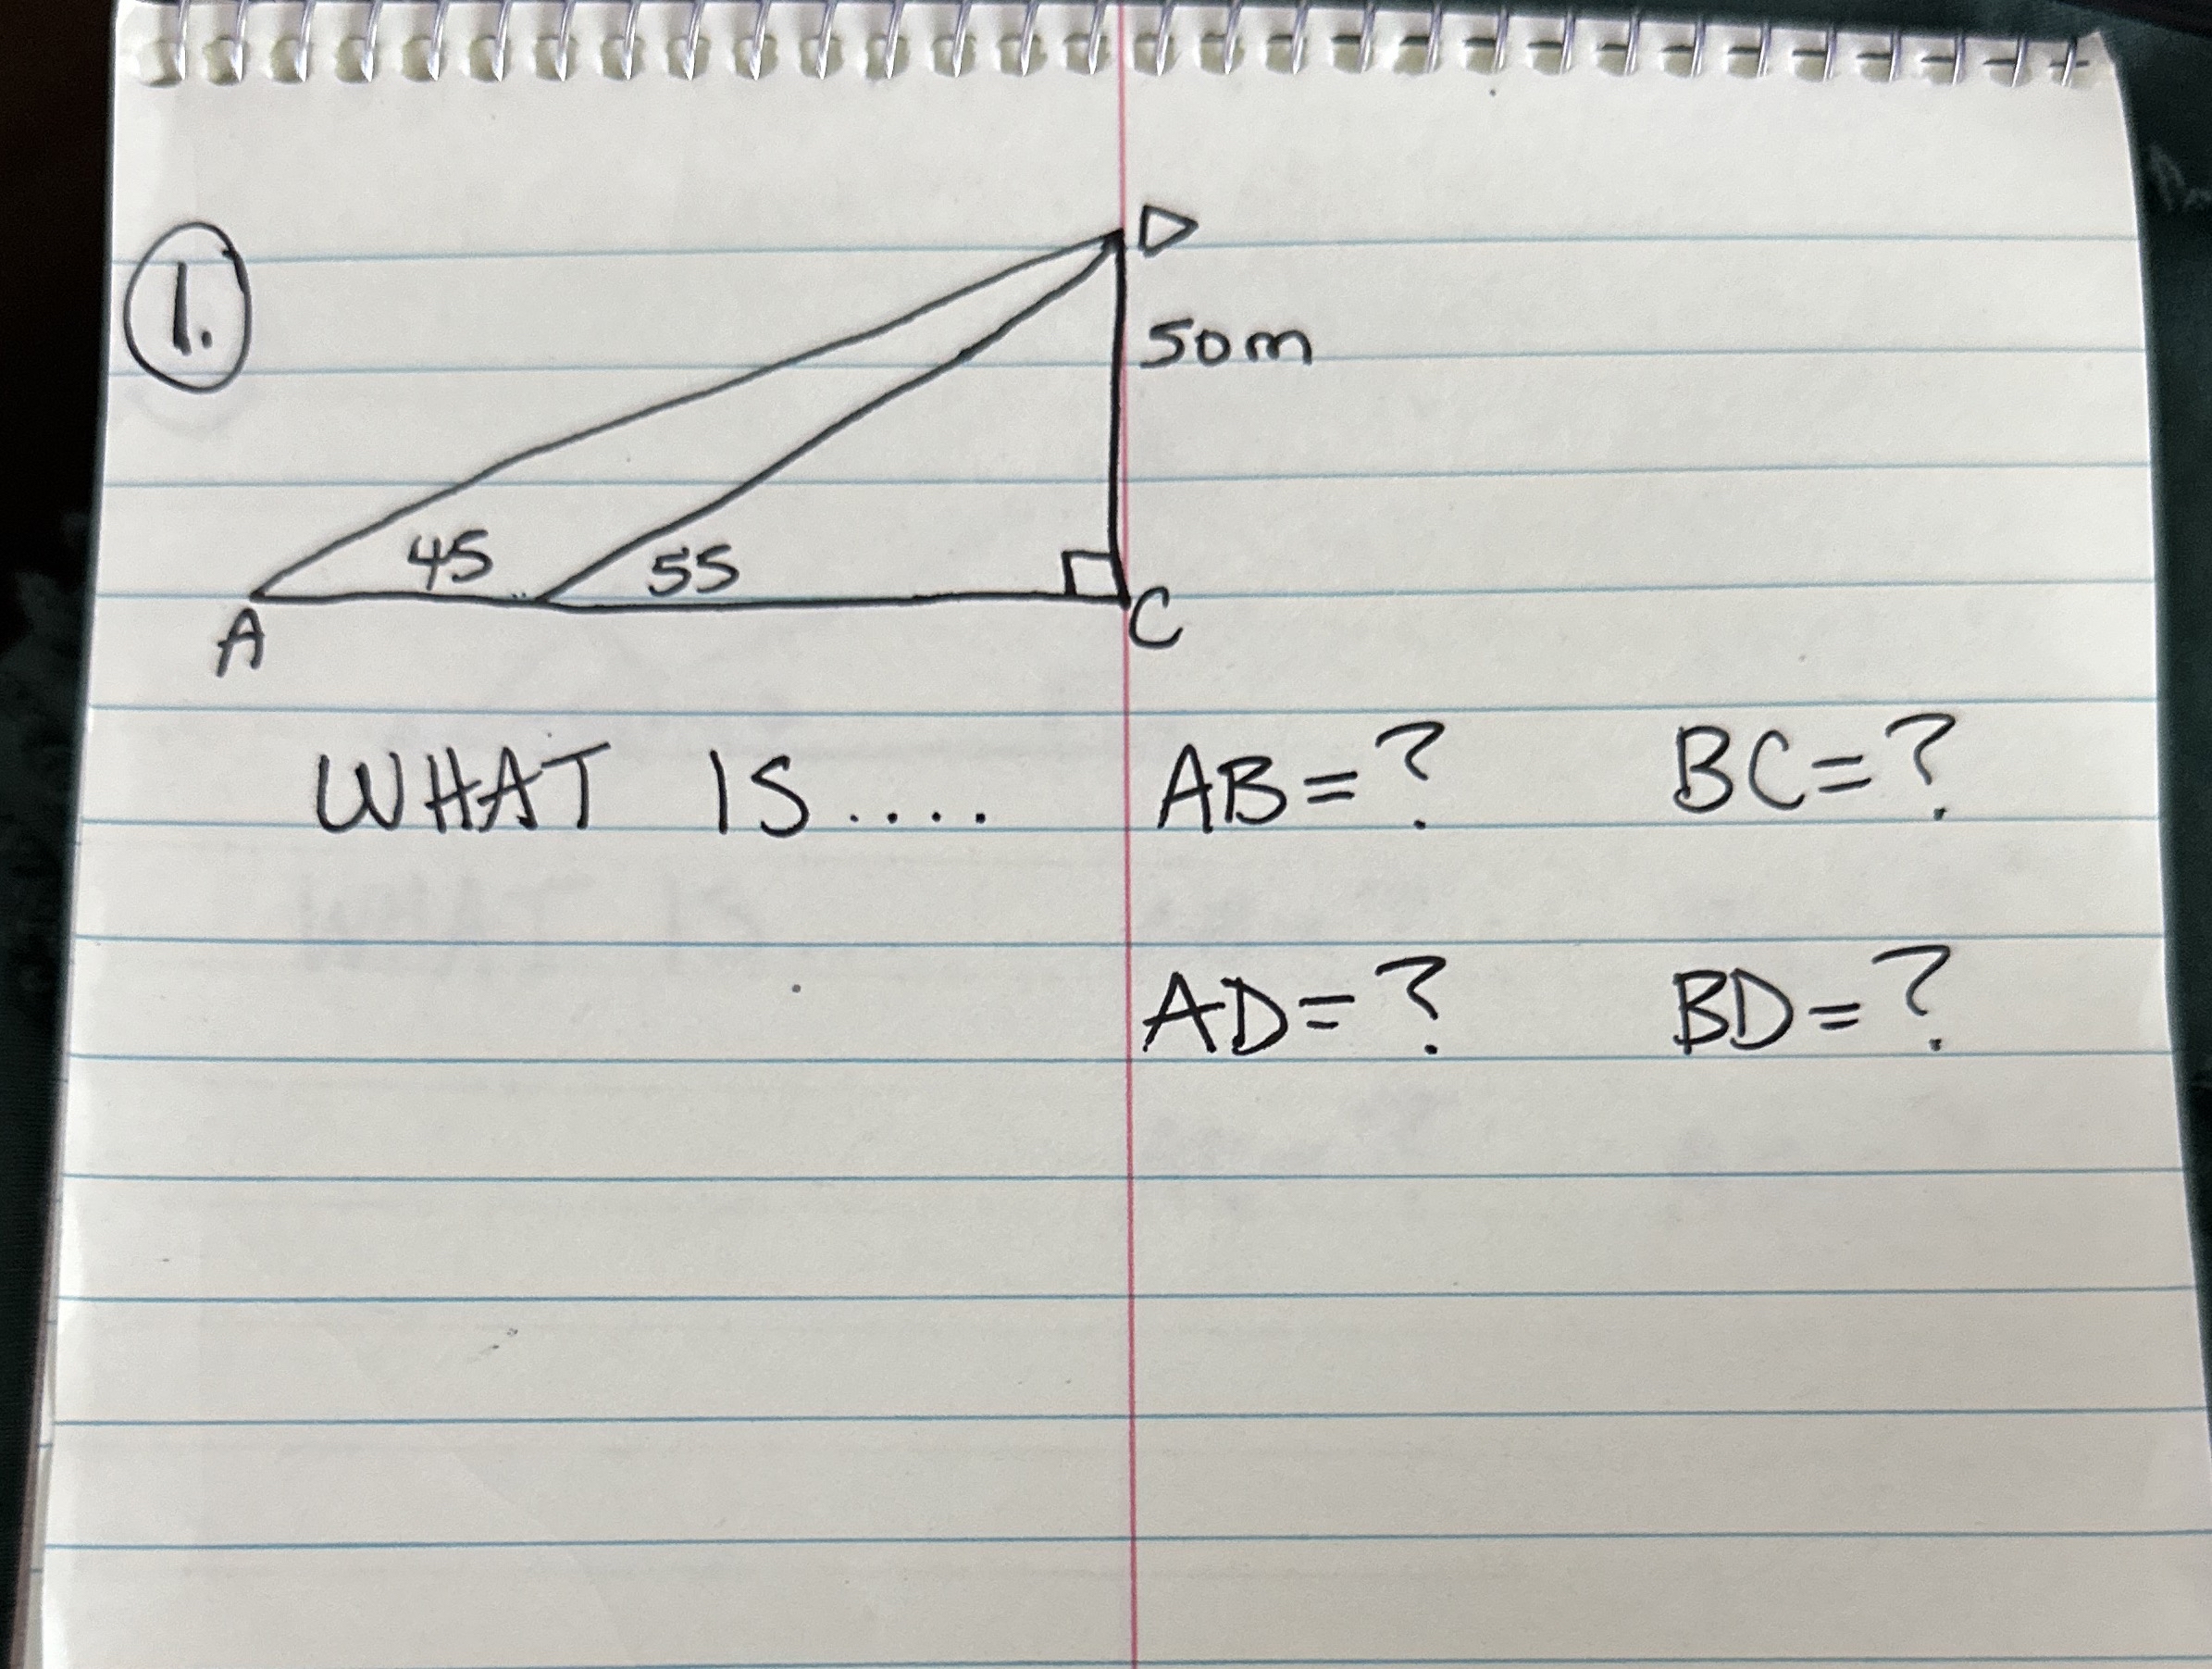 D
1.
50m
45 55
A C
WHAT IS.... AB=? BC=?
AD=? BD=?